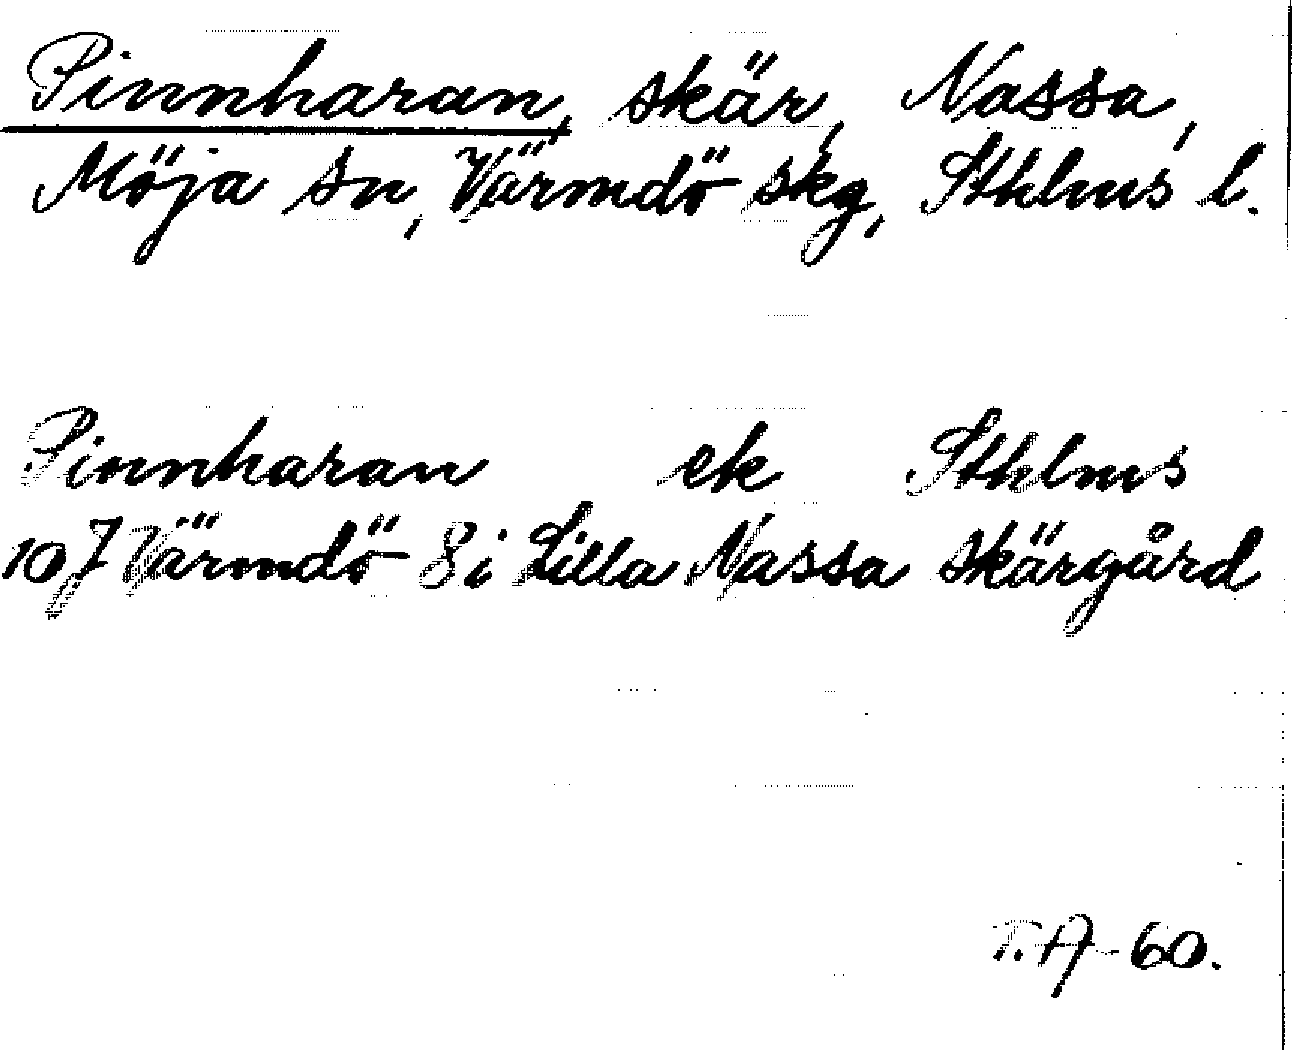 Pinnharan, skär, Nassa,
Möja sn, Värmdö skg, Sthlms l.
Pinnharan ek Sthlms
10 J Värmdö 8 i Lilla Nassa skärgård
T. A-60.